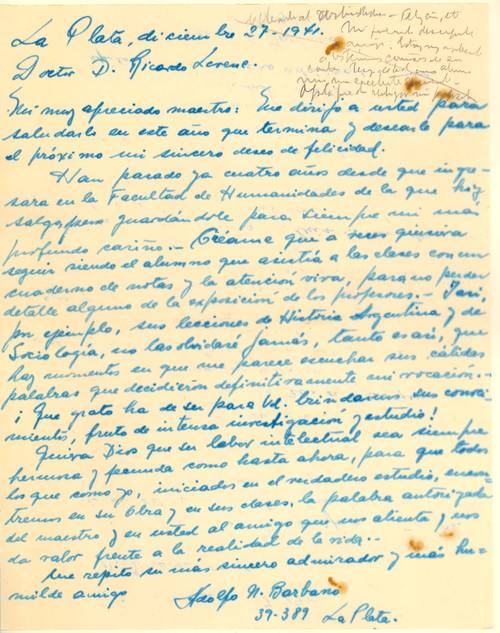 La Plata, diciembre 27-1941.
Doctor D. Ricardo Levene.
Mi muy apreciado maestro: Me dirijo a usted para
saludarlo en este año que termina y desearle para
el próximo mi sincero deseo de felicidad.
Han pasado ya cuatro años desde que ingre-
sara en la Facultad de Humanidades de la que hoy
salgo, pero guardándole para siempre mi más
profundo cariño.- Créame que a veces quisiera
seguir siendo el alumno que asistía a las clases con un
cuaderno de notas y la atención viva, para no perder
detalle alguno de la exposición de los profesores.- Así,
por ejemplo, sus lecciones de Historia Argentina y de
Sociología, no las olvidaré jamás, tanto es así, que
hay momentos en que me parece escuchar sus cálidas
palabras que decidieron definitivamente mi vocación.-
¡Que grato ha de ser para Ud. brindarnos sus conoci-
mientos, fruto de intensa investigación y estudio!
Quiera Dios que su labor intelectual sea siempre
hermosa y fecunda como hasta ahora, para que todos
los que como yo, iniciados en el verdadero estudio, encon-
tremos en su obra y en sus clases, la palabra autorizada
del maestro y en usted al amigo que nos alienta y nos
da valor frente a la realidad de la vida.-
Me repito su más sincero admirador y más hu-
milde amigo
Adolfo N. Barbano
39-389 La Plata.